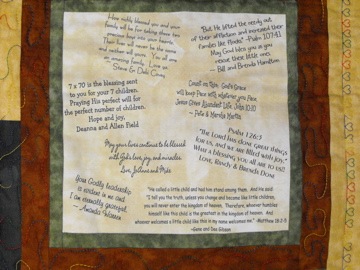 How richly blessed you and your
family will be for taking these two
precious boys into your hearts.
Their lives will never be the same
and neither will yours. You all are
an amazing family. Love you
Steve & Dale
"But He lifted the needy out
of their affliction and increased their
families like flocks" -Psalm 107:41
May God bless you as you
nurse these little ones.
— Bill and Brenda Hamilton
7 x 70 is the blessing sent
to you for your 7 children.
Praying His perfect will for
the perfect number of children.
Hope and joy,
Deanna and Allen Field
Count on this: God's Grace
will keep Pace with whatever you Face.
Jesus Gives Abundant Life. John 10:10
— Pete & Marsha Martin
Psalm 126:3
"The Lord has done great things
for us, and we are filled with joy."
What a blessing you all are to us!
Love, Randy & Brenda Dowd
May your lives continue to be blessed
with God's love, joy, and miracles.
Love, Julianne and Mike
Your Godly leadership
is evident in me and
I am eternally grateful.
— Amanda
"He called a little child and had him stand among them. And He said
"I tell you the truth, unless you change and become like little children,
you will never enter the kingdom of heaven. Therefore, whoever humbles
himself like this child is the greatest in the kingdom of heaven. And
whoever welcomes a little child like this in my name welcomes me." -Matthew 18:2-5
-Gene and Dea Gibson